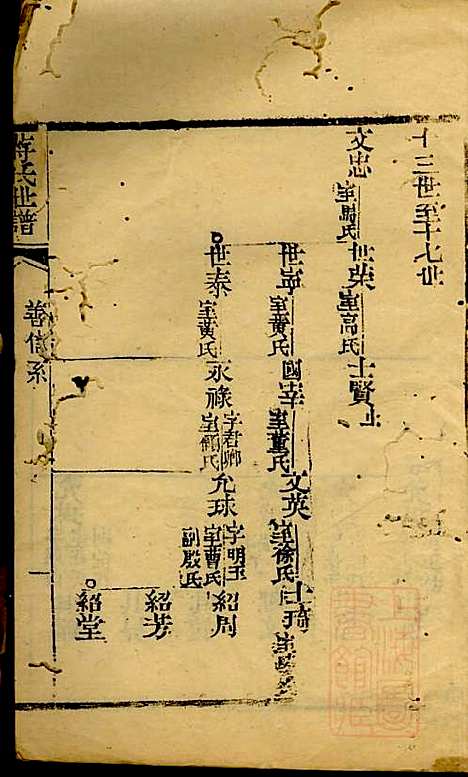 十三世至十七世
文忠 室馬氏 世榮 室高氏 士賢 止
世寧 室黃氏 國宰 室董氏 文英 室徐氏 士琦
世泰 室黃氏 永祿 字君卿 室顧氏 允球 字明玉 室曹氏 副殷氏 紹周
紹芳
紹堂
蔣氏世譜
善信系